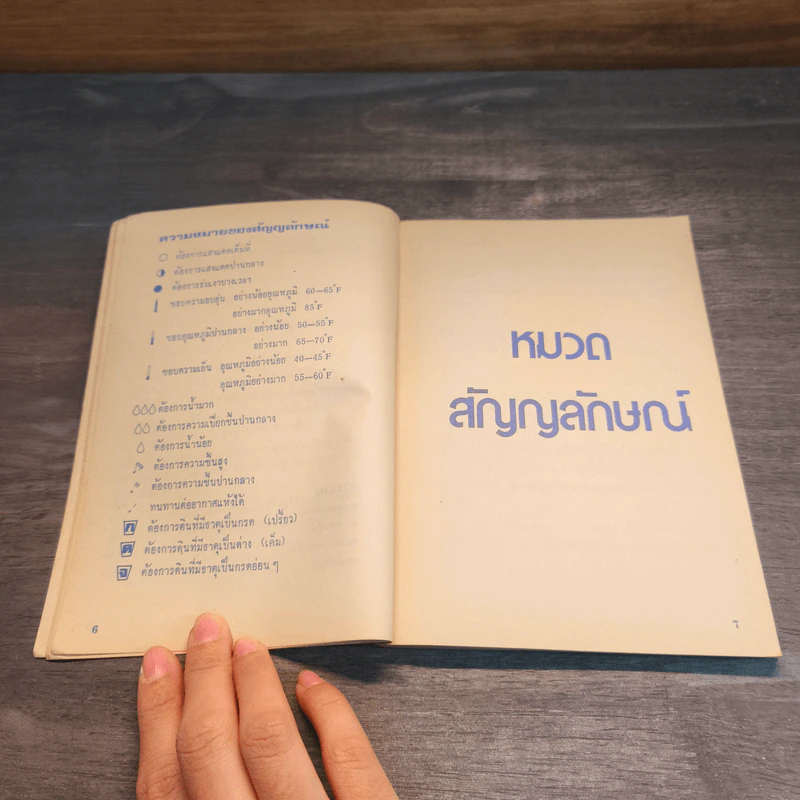 ความหมายของสัญญลักษณ์
ต้องการแสงแดดเต็มที่
ต้องการแสงแดดปานกลาง
ต้องการร่มเงาบางเวลา
ชอบความอบอุ่น อย่างน้อยอุณหภูมิ 60–65°F
อย่างมากอุณหภูมิ 85°F
ชอบอุณหภูมิปานกลาง อย่างน้อย 50–55°F
อย่างมาก 65–70°F
ชอบความเย็น อุณหภูมิอย่างน้อย 40–45°F
อุณหภูมิอย่างมาก 55–60°F
ต้องการน้ำมาก
ต้องการความเปียกชื้นปานกลาง
ต้องการน้ำน้อย
ต้องการความชื้นสูง
ต้องการความชื้นปานกลาง
ทนทานต่ออากาศแห้งได้
ก ต้องการดินที่มีธาตุเป็นกรด (เปรี้ยว)
ต้องการดินที่มีธาตุเป็นด่าง (เค็ม)
ต้องการดินที่มีธาตุเป็นกรดอ่อน ๆ
6
หมวด
สัญญลักษณ์
7